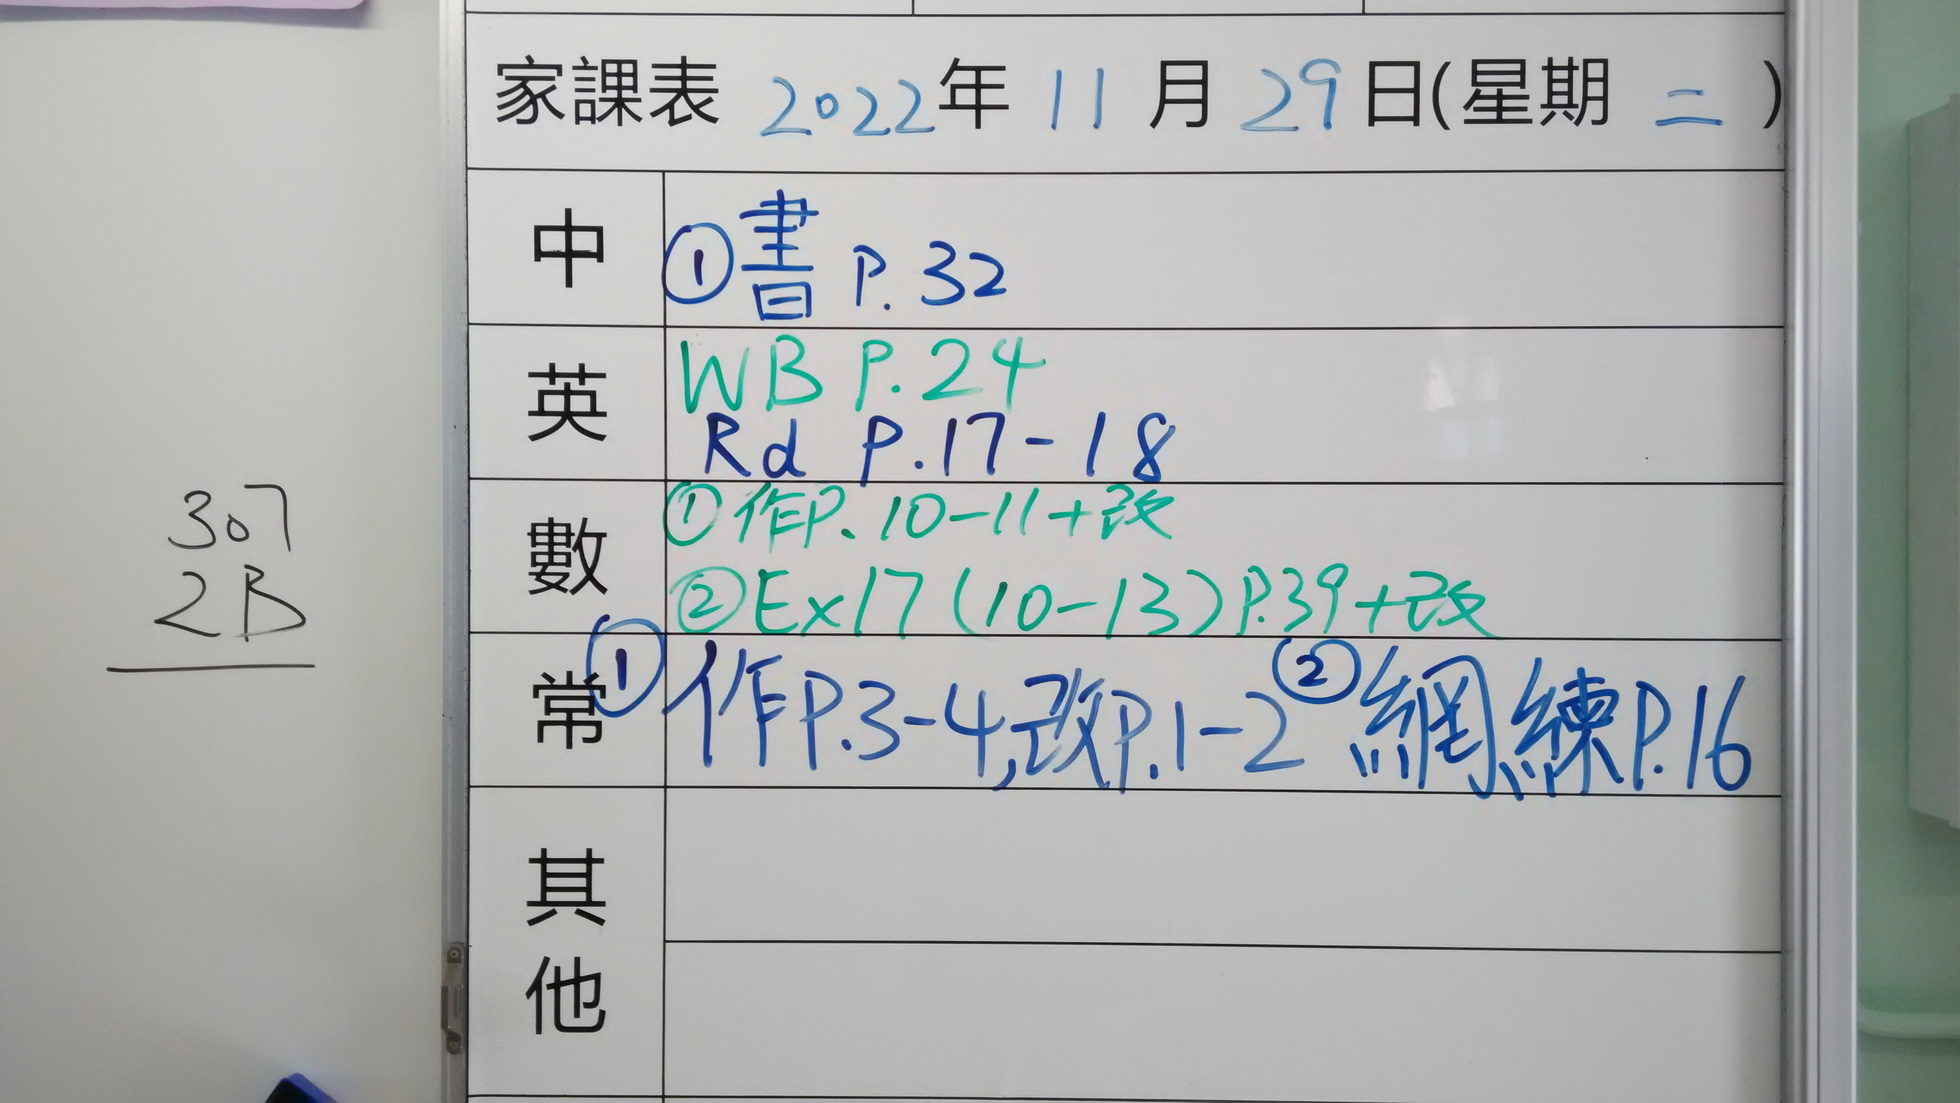 家課表 2022年 11月 29日(星期 二 )
中 ①書 P. 32
英 WB P. 24
Rd P. 17-18
數 ①作P. 10-11+改
②Ex17(10-13)P.39+改
常 ①作P.3-4,改P.1-2 ②網練P.16
其他
307
2B